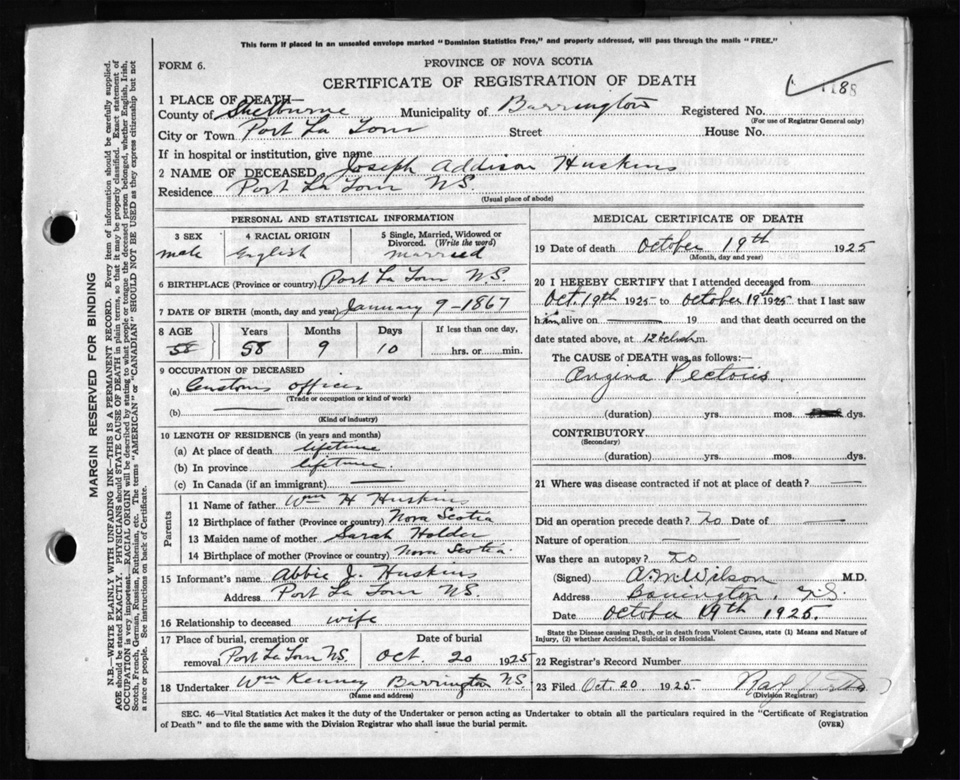 This form if placed in an unsealed envelope marked "Dominion Statistics Free," and properly addressed, will pass through the mails "FREE."
FORM 6.
PROVINCE OF NOVA SCOTIA
CERTIFICATE OF REGISTRATION OF DEATH
188
1 PLACE OF DEATH—
County of Shelburne Municipality of Barrington Registered No.
(For use of Registrar General only)
City or Town Port La Tour Street House No.
If in hospital or institution, give name
2 NAME OF DECEASED Joseph Addison Huskins
Residence Port La Tour N.S.
(Usual place of abode)
PERSONAL AND STATISTICAL INFORMATION
3 SEX 4 RACIAL ORIGIN 5 Single, Married, Widowed or Divorced. (Write the word)
male English married
6 BIRTHPLACE (Province or country) Port La Tour N.S.
7 DATE OF BIRTH (month, day and year) January 9-1867
8 AGE Years Months Days If less than one day,
58 58 9 10 hrs. or min.
9 OCCUPATION OF DECEASED
(a) Customs officer
(Trade or occupation or kind of work)
(b)
(Kind of industry)
10 LENGTH OF RESIDENCE (in years and months)
(a) At place of death lifetime
(b) In province lifetime
(c) In Canada (if an immigrant)
Parents
11 Name of father Wm H Huskins
12 Birthplace of father (Province or country) Nova Scotia
13 Maiden name of mother Sarah Holder
14 Birthplace of mother (Province or country) Nova Scotia
15 Informant's name Abbie J. Huskins
Address Port La Tour N.S.
16 Relationship to deceased wife
17 Place of burial, cremation or Date of burial
removal Port La Tour N.S. Oct. 20 1925
18 Undertaker Wm Kenney Barrington N.S.
(Name and address)
MEDICAL CERTIFICATE OF DEATH
19 Date of death October 19th 1925
(Month, day and year)
20 I HEREBY CERTIFY that I attended deceased from
Oct. 19th 1925 to October 19th 1925 that I last saw
him alive on 19 and that death occurred on
date stated above, at 12 m.
The CAUSE OF DEATH was as follows:—
Angina Pectoris
(duration) yrs. mos. dys.
CONTRIBUTORY
(Secondary)
(duration) yrs. mos. dys.
21 Where was disease contracted if not at place of death?
Did an operation precede death? No Date of
Nature of operation
Was there an autopsy? No
(Signed) A.M. Wilson M.D.
Address Barrington, N.S.
Date October 19th 1925.
State the Disease causing Death, or in death from Violent Causes, state (1) Means and Nature of
Injury, (2) whether Accidental, Suicidal or Homicidal.
22 Registrar's Record Number
23 Filed Oct. 20 1925
(Division Registrar)
SEC. 46—Vital Statistics Act makes it the duty of the Undertaker or person acting as Undertaker to obtain all the particulars required in the "Certificate of Registration
of Death" and to file the same with the Division Registrar who shall issue the burial permit. (OVER)
MARGIN RESERVED FOR BINDING
N.B.—WRITE PLAINLY WITH UNFADING INK—THIS IS A PERMANENT RECORD. Every item of information should be carefully supplied.
AGE should be stated EXACTLY. PHYSICIANS should STATE CAUSE OF DEATH in plain terms, so that it may be properly classified. Exact statement of
OCCUPATION is very important. RACIAL ORIGIN will be described by stating to what people or tongue the deceased person belonged, whether English, Irish,
Scotch, French, German, Russian, Ruthenian, etc. The terms "AMERICAN" or "CANADIAN" SHOULD NOT BE USED as they express citizenship but not
a race or people. See instructions on back of Certificate.